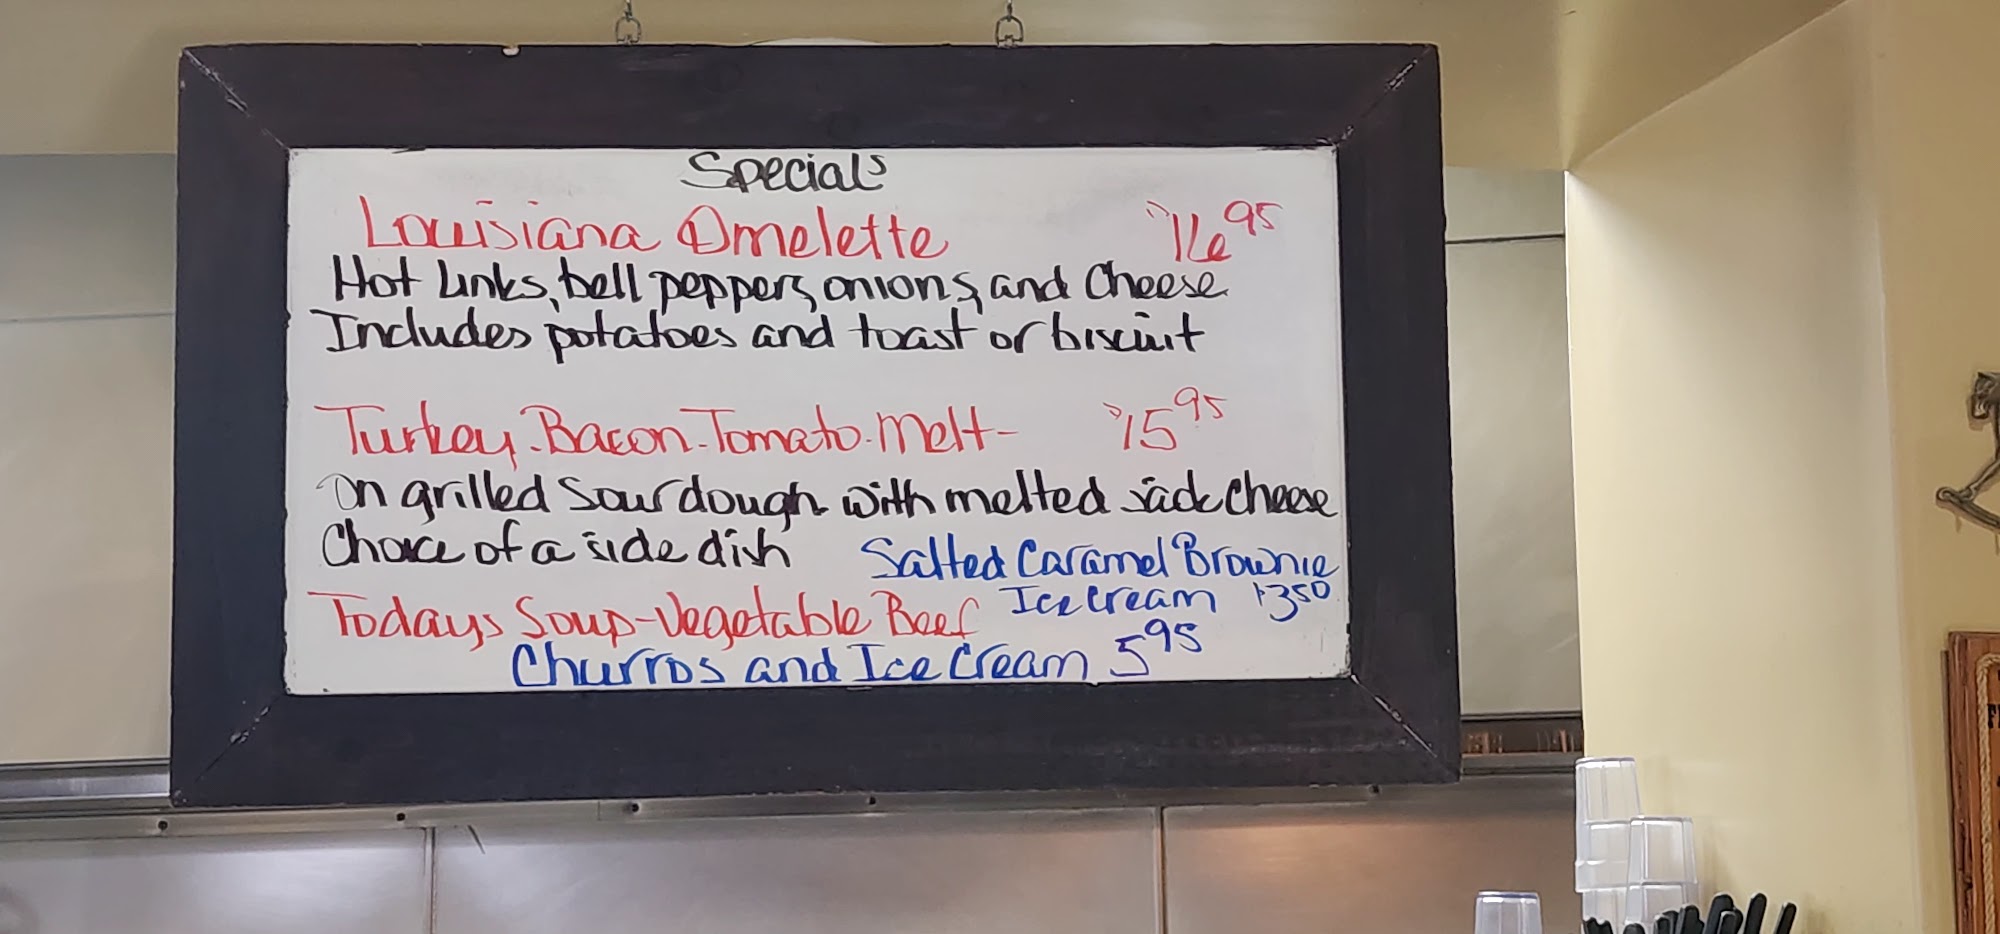 Specials
Louisiana Omelette $16.95
Hot Links, bell peppers, onions, and Cheese
Includes potatoes and toast or biscuit
Turkey-Bacon-Tomato-Melt- $15.95
On grilled Sourdough with melted jack cheese
Choice of a side dish
Salted Caramel Brownie
Ice Cream $3.50
Todays Soup-Vegetable Beef
Churros and Ice Cream 5.95